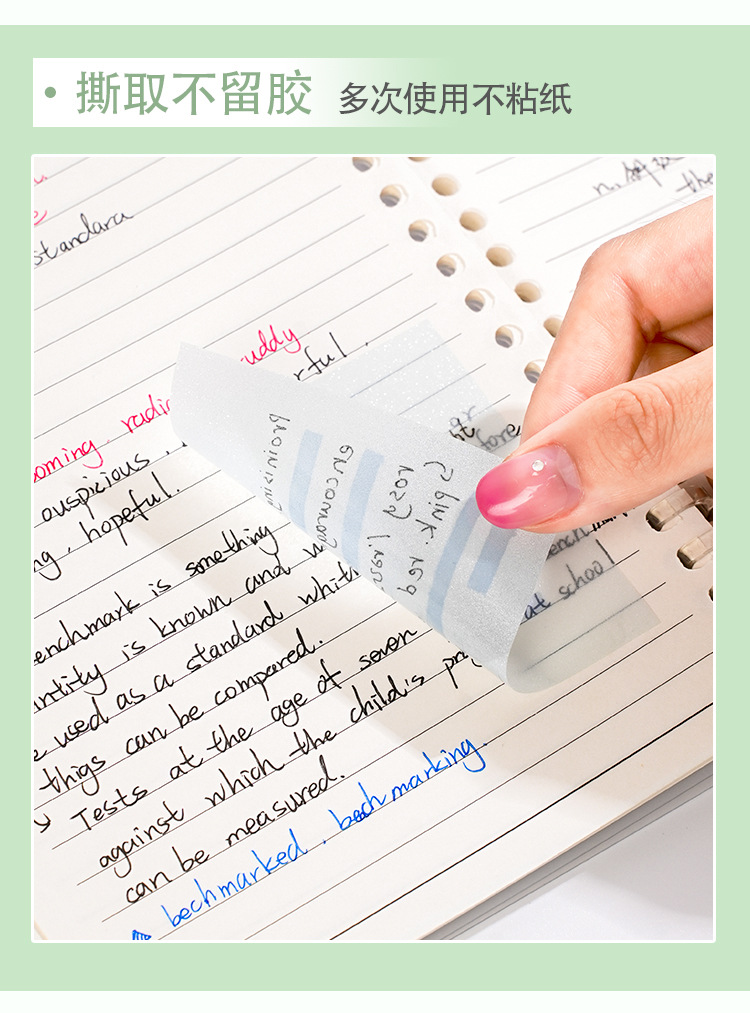 · 撕取不留胶 多次使用不粘纸
standara
uddy
rful
ooming, radi
auspicious,
ng, hopeful.
fore
enchmark is something
antity is known and w
e used as a standard whit
at school
thigs can be compared.
Tests at the age of seven
against which the child's pr
can be measured.
bechmarked, bechmarking.
the